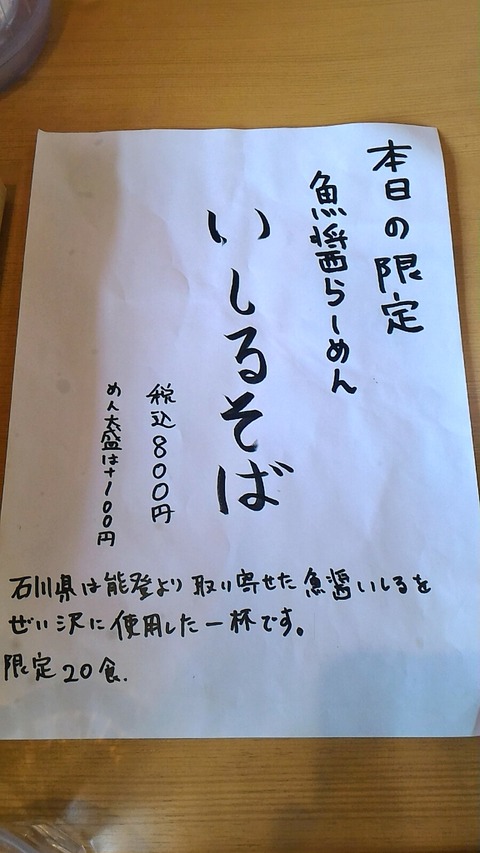 本日の限定
魚醤らーめん
いしるそば
税込800円
めん大盛は+100円
石川県は能登より取り寄せた魚醤いしるを
ぜい沢に使用した一杯です。
限定20食.